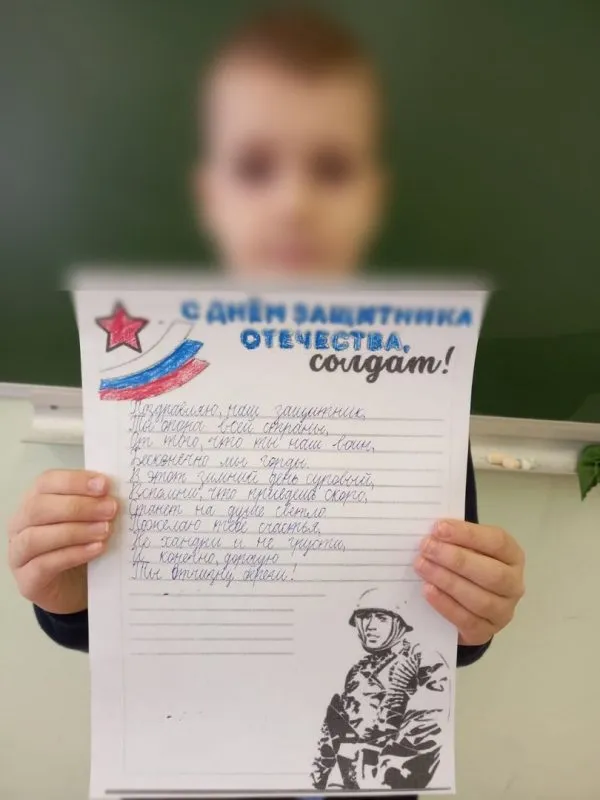 С ДНЁМ ЗАЩИТНИКА
ОТЕЧЕСТВА,
солдат!
Поздравляю, наш защитник,
Ты опора всей страны,
От того, что ты наш воин,
Бесконечно мы горды.
В этот зимний день суровый,
Вспомни, что придёт скоро,
Станет на душе светло.
Пожелаю тебе счастья,
Не хандри и не грусти,
И конечно, дорогую
Ты отчизну береги!